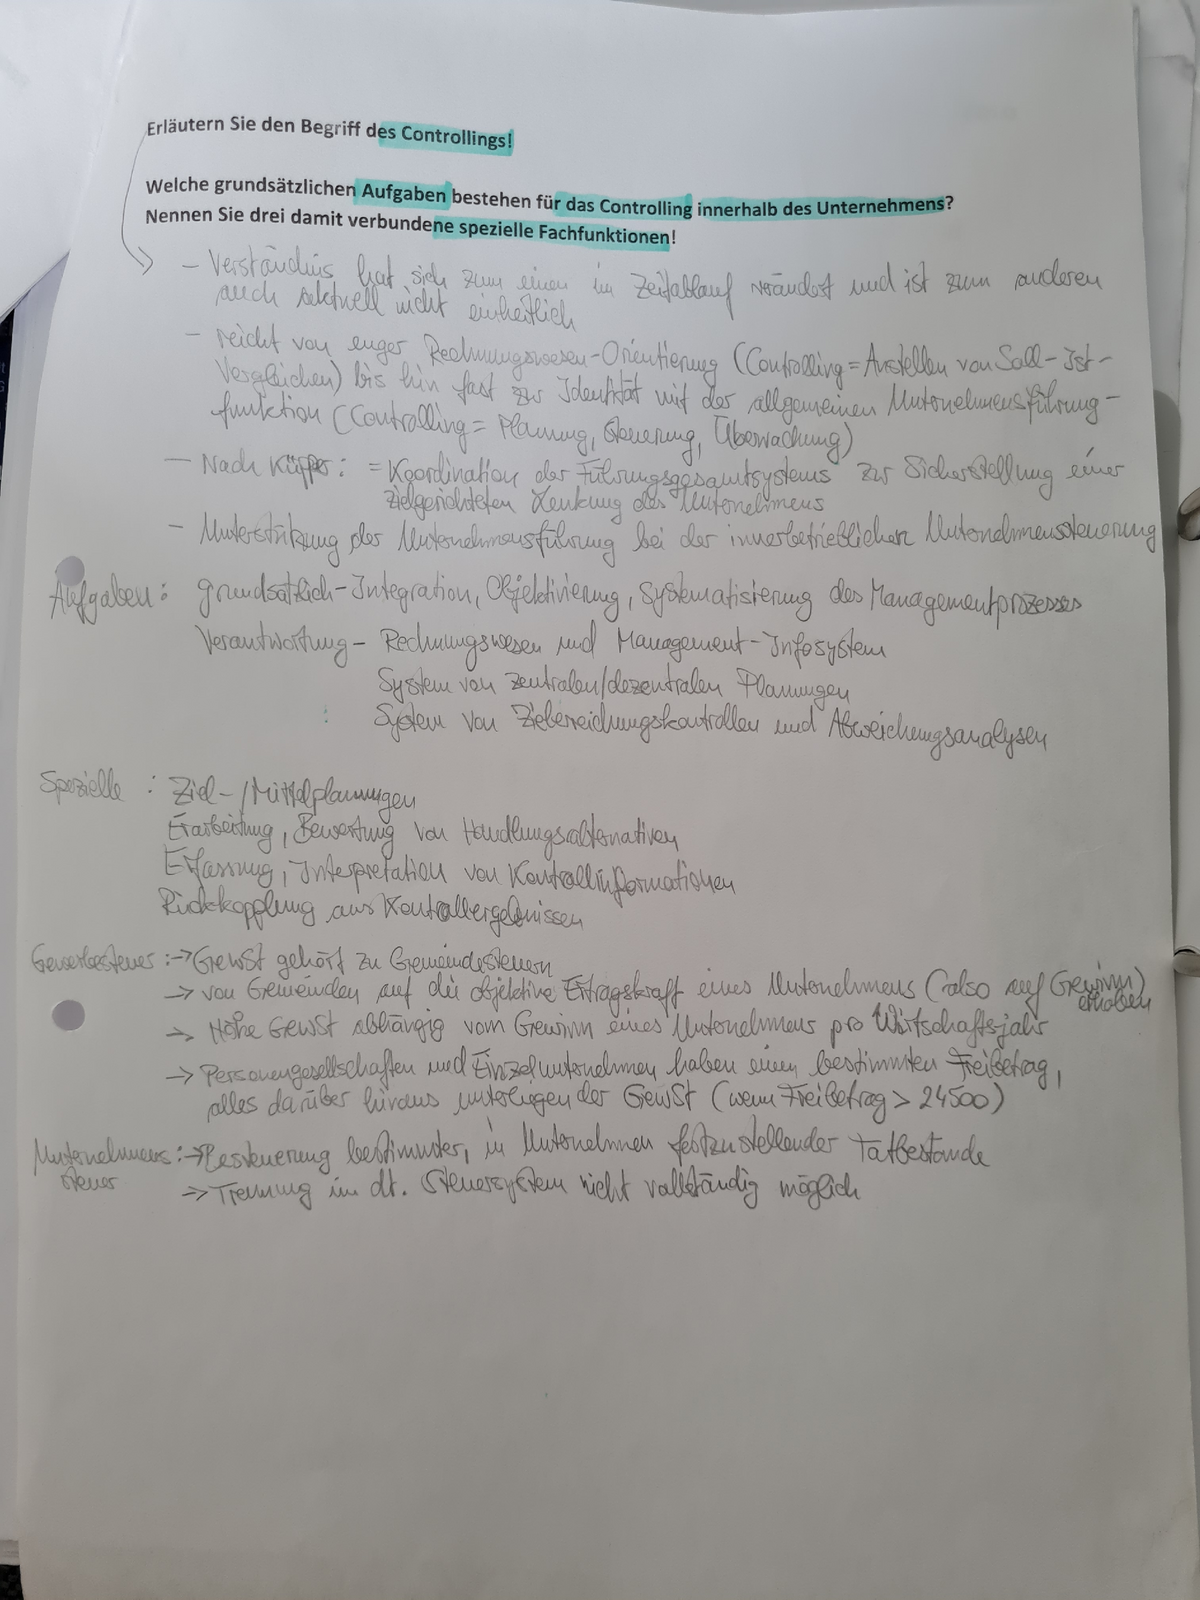 Erläutern Sie den Begriff des Controllings!
Welche grundsätzlichen Aufgaben bestehen für das Controlling innerhalb des Unternehmens?
Nennen Sie drei damit verbundene spezielle Fachfunktionen!
- Verständnis hat sich zum einen im Zeitablauf verändert und ist zum anderen
auch aktuell nicht einheitlich
- reicht von enger Rechnungswesen-Orientierung (Controlling = Anstellen von Soll-Ist-
Vergleichen) bis hin fast zur Identität mit der allgemeinen Unternehmensführung-
funktion (Controlling = Planung, Steuerung, Überwachung)
- Nach Küpper: = Koordination der Führungsgesamtsystems zur Sicherstellung einer
zielgerichteten Lenkung des Unternehmens
- Unterstützung der Unternehmensführung bei der innerbetrieblichen Unternehmenssteuerung
Aufgaben: grundsätzlich - Integration, Objektivierung, Systematisierung des Managementprozesses
Verantwortung - Rechnungswesen und Management-Infosystem
System von zentralen/dezentralen Planungen
: System von Zielerreichungskontrollen und Abweichungsanalysen
Spezielle : Ziel-/Mittelplanungen
Erarbeitung, Bewertung von Handlungsalternativen
Erfassung, Interpretation von Kontrollinformationen
Rückkopplung aus Kontrollergebnissen
Gewerbesteuer: → GewSt gehört zu Gemeindesteuern
→ von Gemeinden auf die objektive Ertragskraft eines Unternehmens (also auf Gewinn)
erhoben
→ Höhe GewSt abhängig vom Gewinn eines Unternehmens pro Wirtschaftsjahr
→ Personengesellschaften und Einzelunternehmen haben einen bestimmten Freibetrag,
alles darüber hinaus unterliegen der GewSt (wenn Freibetrag > 24500)
Unternehmens: → Besteuerung bestimmter, in Unternehmen festzustellender Tatbestände
steuer
→ Trennung im dt. Steuersystem nicht vollständig möglich